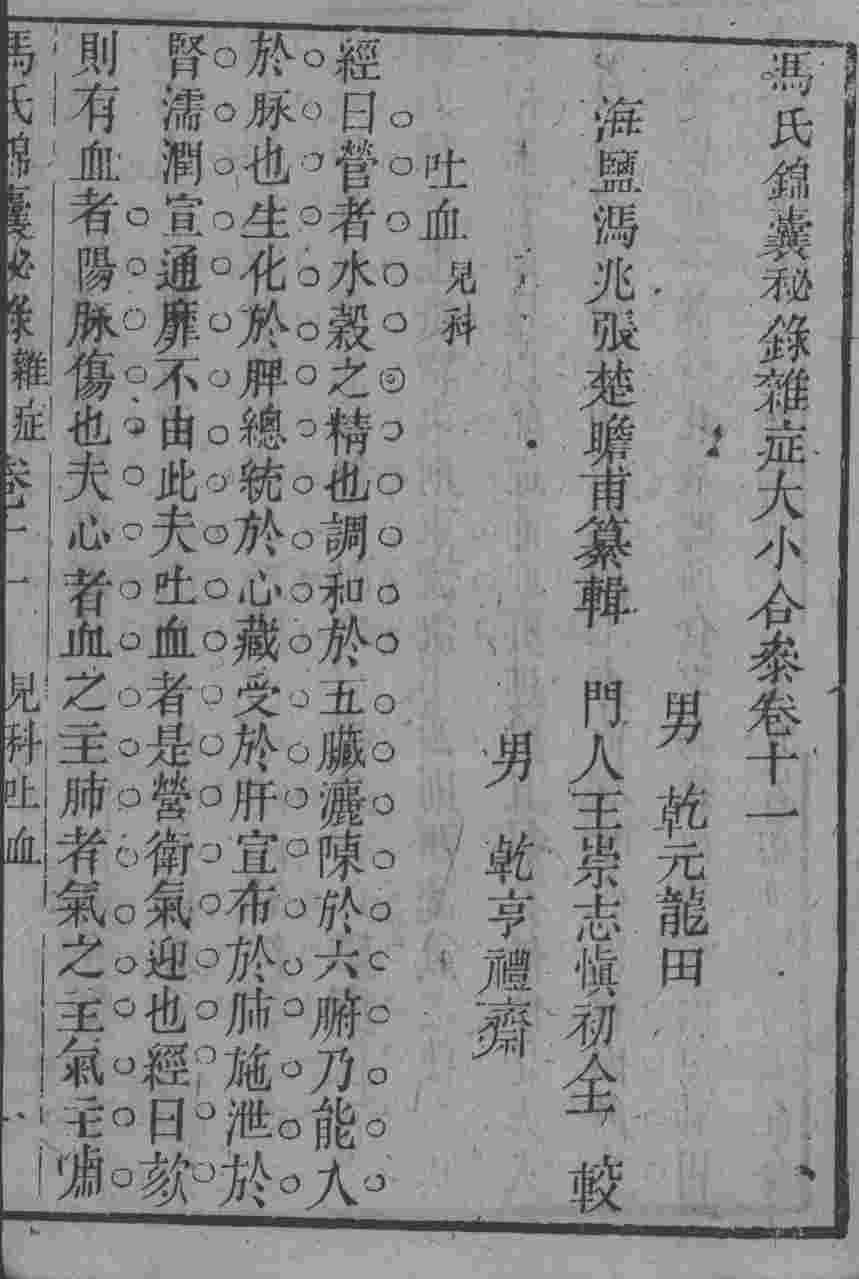 馮氏錦囊秘錄雜症大小合叅卷十一
男 乾元龍田
海鹽馮兆張楚瞻甫纂輯 門人王崇志愼初仝 較
男 乾亨禮齋
吐血 兒科
經曰營者水穀之精也調和於五臟灑陳於六腑乃能入
於脉也生化於脾總統於心藏受於肝宣布於肺施泄於
腎濡潤宣通靡不由此夫吐血者是營衛氣迎也經曰欬
則有血者陽脉傷也夫心者血之主肺者氣之主氣主喣
馮氏錦囊秘錄 雜症 卷十一 兒科吐血